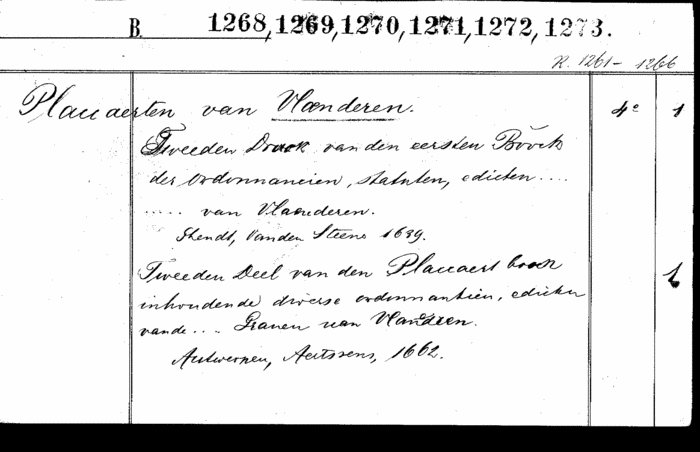 B. 1268, 1269, 1270, 1271, 1272, 1273.
R. 1261- 1266
Placcaerten van Vlaenderen. 4º 1
Tweeden Druck van den eersten Bouck
der ordonnancien, statuten, edicten ....
..... van Vlaenderen.
Ghendt, Vanden Steene 1639.
Tweeden Deel van den Placcaert boeck 1
inhoudende diverse ordonnantien, edicten
vande .... Graven van Vlaendren.
Antwerpen, Aertssens, 1662.